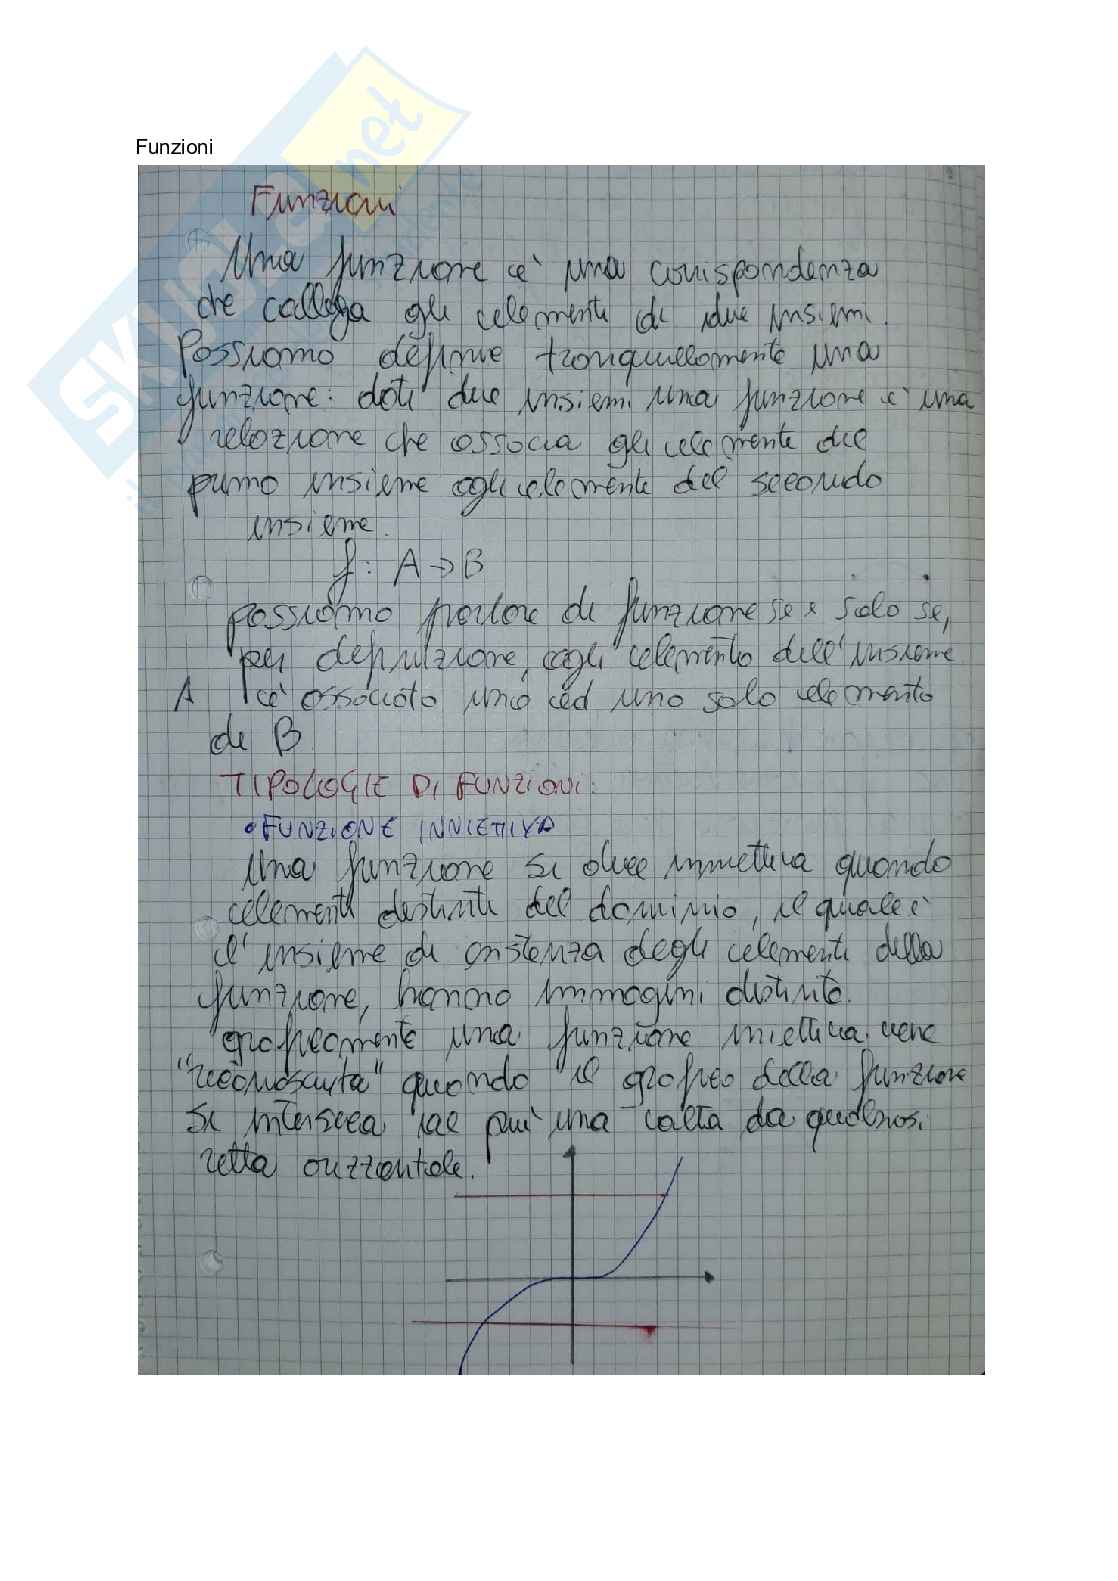 Funzioni
Funzioni
Una funzione è una corrispondenza
che collega gli elementi di due insiemi.
Possiamo definire tranquillamente una
funzione: dati due insiemi una funzione è una
relazione che associa gli elementi del
primo insieme agli elementi del secondo
insieme.
f: A → B
possiamo parlare di funzione se e solo se,
per definizione, ogni elemento dell'insieme
A è associato uno ed uno solo elemento
di B
TIPOLOGIE DI FUNZIONI:
• FUNZIONE INNIETTIVA
Una funzione si dice iniettiva quando
elementi distinti del dominio, il quale è
l'insieme di esistenza degli elementi della
funzione, hanno immagini distinte.
graficamente una funzione iniettiva viene
"riconosciuta" quando il grafico della funzione
si interseca al più una volta da qualsiasi
retta orizzontale.
SKUOLA.net